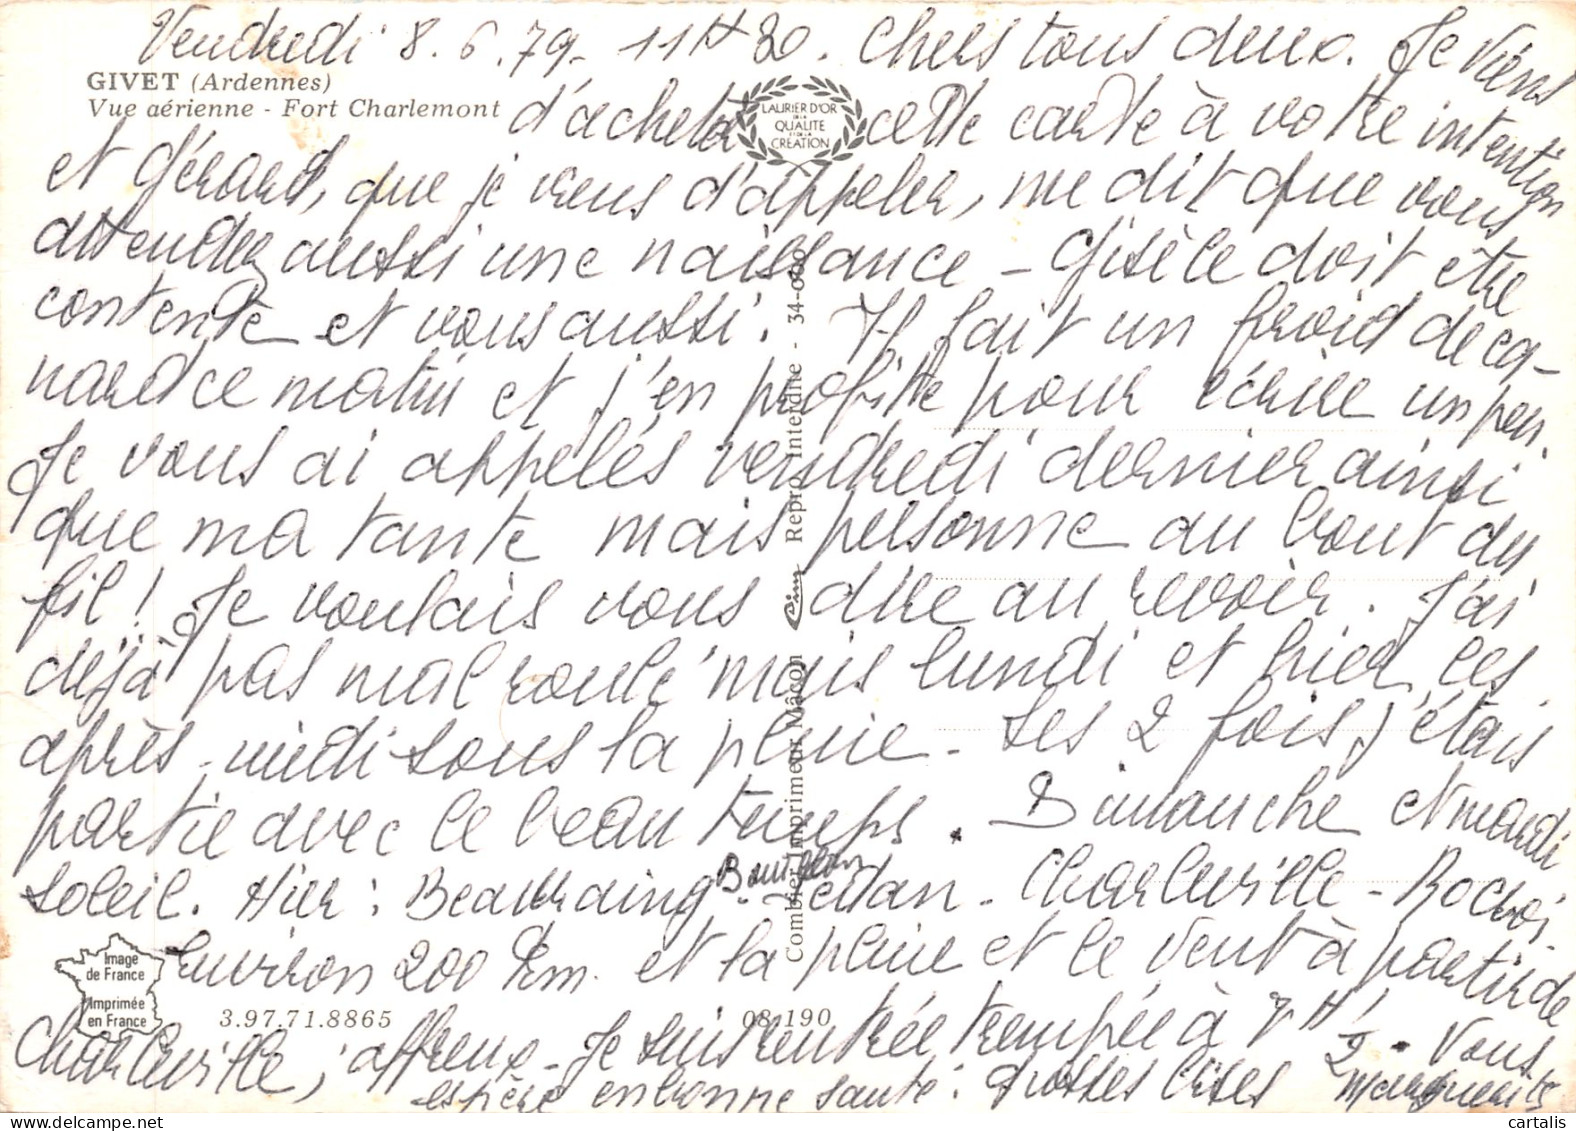 Vendredi 8.6.79 - 11H30. Chers tous deux. Je viens
GIVET (Ardennes)
Vue aérienne - Fort Charlemont
d'acheter cette carte à votre intention
LAURIER D'OR
DE LA
QUALITE
ET DE LA
CREATION
et Gérard, que je viens d'appeler, me dit que vous
attendez aussi une naissance - Gisèle doit être
contente et vous aussi. Il fait un froid de ca-
nard ce matin et j'en profite pour écrire un peu.
Je vous ai appelés vendredi dernier ainsi
que ma tante mais personne au bout du
fil ! Je voulais vous dire au revoir. J'ai
déjà pas mal roulé mais lundi et hier, les
après-midi sous la pluie - Les 2 fois, j'étais
partie avec le beau temps. Dimanche et mardi
soleil. Hier : Beauraing - Bouillon - Sedan - Charleville - Rocroi.
Environ 200 Km. et la pluie et le vent à partir de
Charleville, affreux - Je suis rentrée trempée à 7 H !
espère en bonne santé. Grosses bises
Vous
Marguerite
Combier Imprimeur Mâcon Cim Repro. Interdite - 34-000
Image
de France
Imprimée
en France
3.97.71.8865
08 190
cartalis